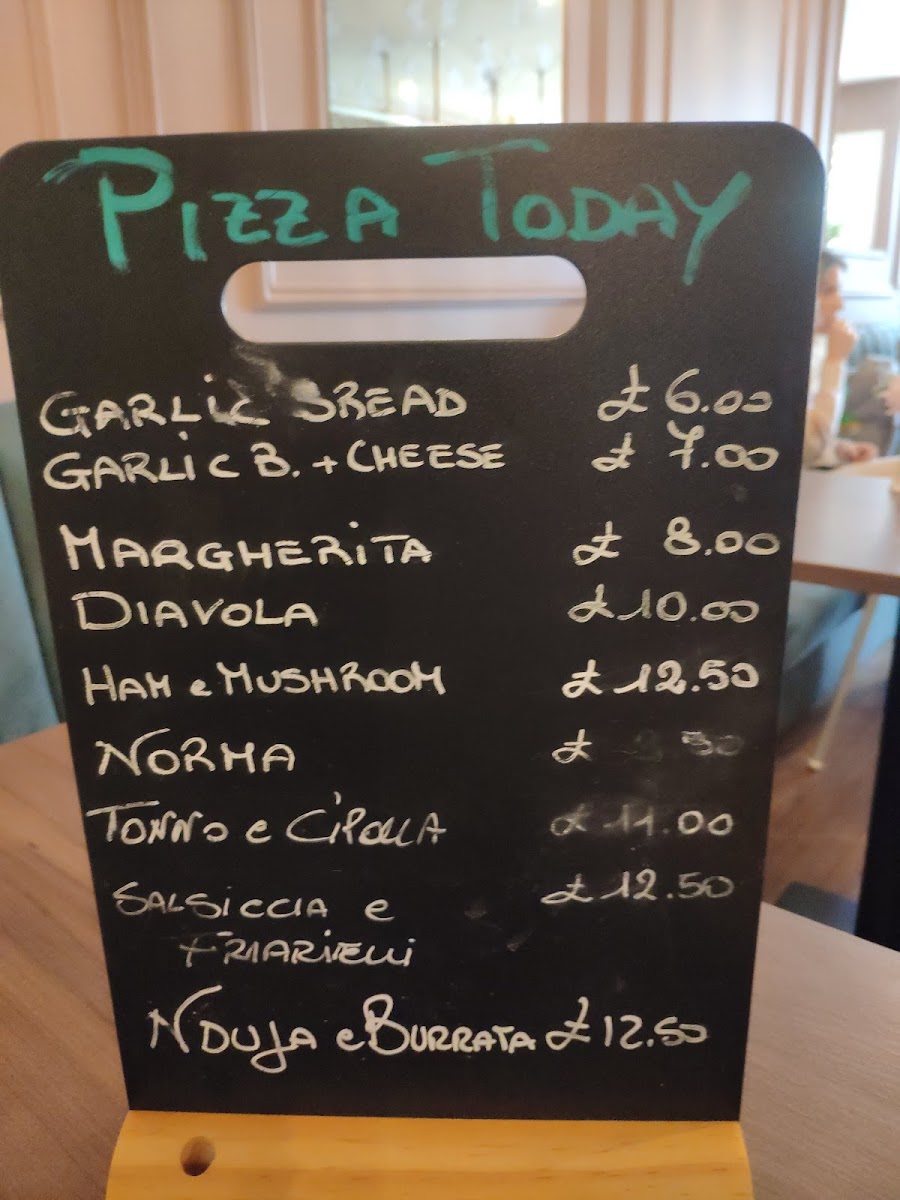 PIZZA TODAY
GARLIC BREAD £ 6.00
GARLIC B. + CHEESE £ 7.00
MARGHERITA £ 8.00
DIAVOLA £ 10.00
HAM e MUSHROOM £ 12.50
NORMA £
TONNO e CIPOLLA £ 11.00
SALSICCIA e £ 12.50
FRIARIELLI
NDUJA e BURRATA £ 12.50